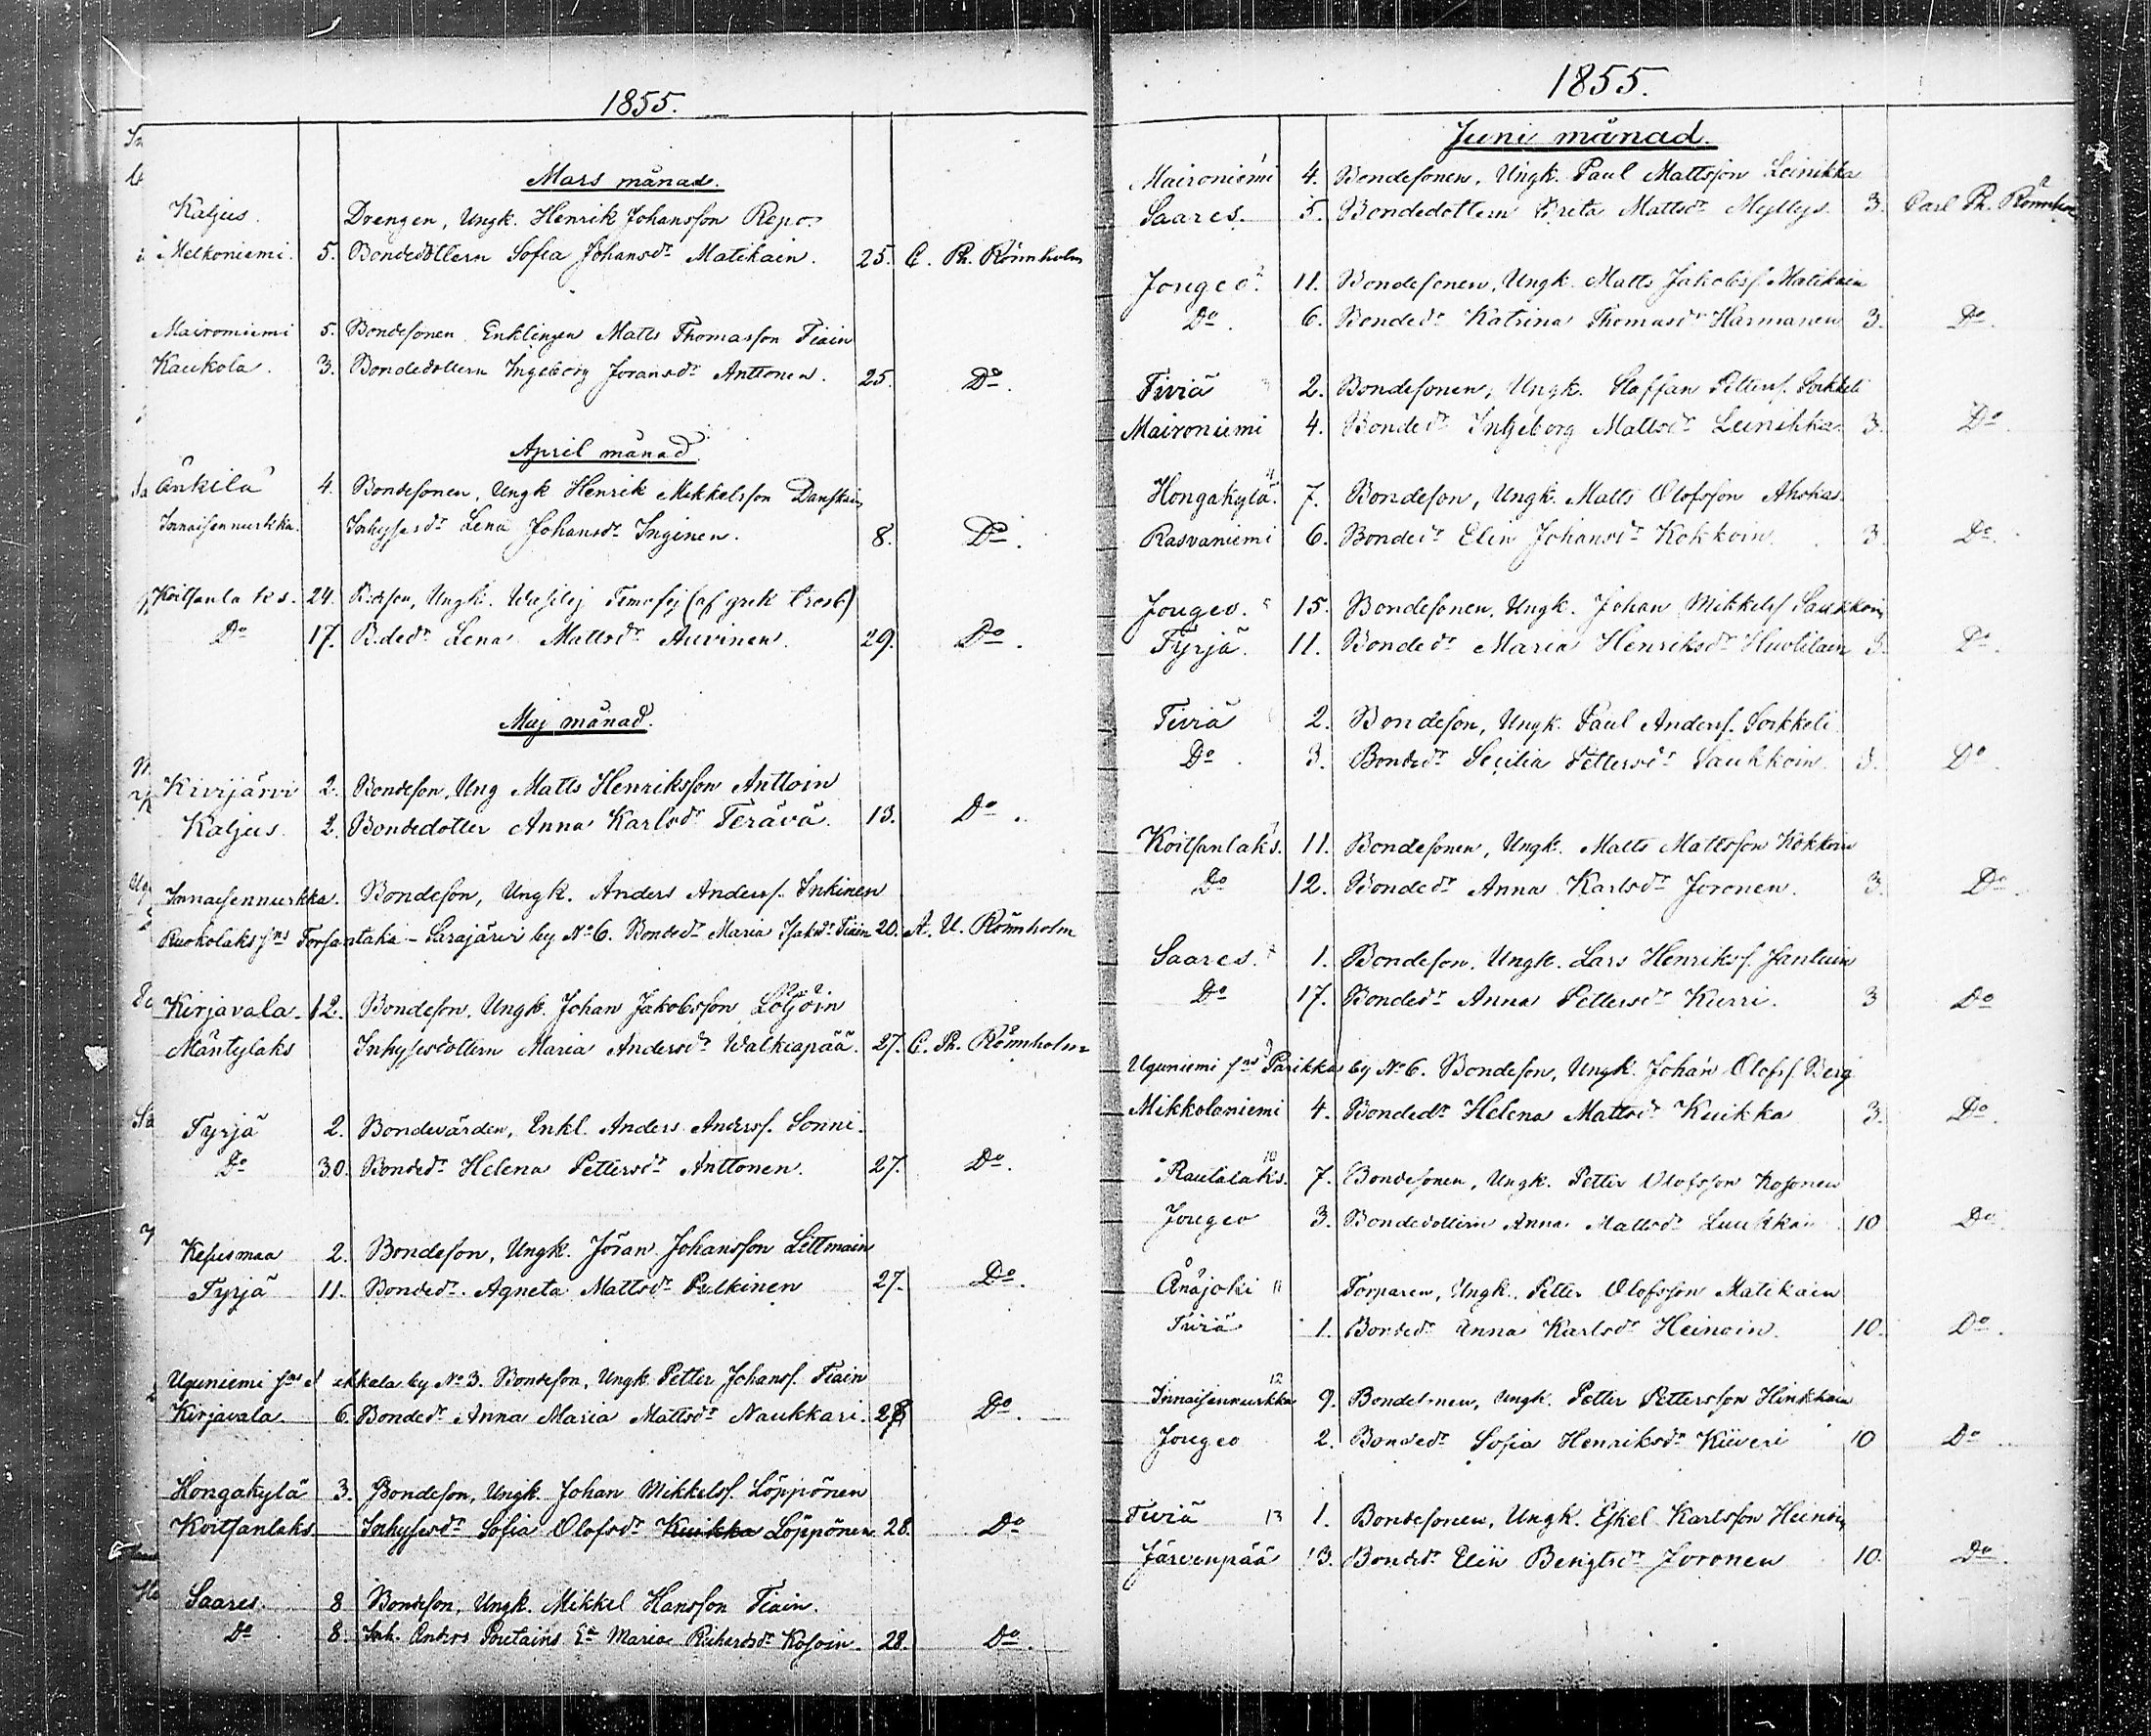 1855.
Mars månad.
Kaljus. Drengen, Ungk. Henrik Johansson Repo.
Melkoniemi. 5. Bondedottern Sofia Johansdr Matikain. 25. C. Ph. Rönnholm
Mairomiemi 5. Bondesonen Enklingen Matts Thomasson Tiain
Kaukola. 3. Bondedottern Ingeborg Joransdr Anttonen. 25. Do.
April månad.
Änkilä 4. Bondesonen, Ungk Henrik Mikkelsson Danskin
Innaisennurkka. Inhysesdr Lena Johansdr Inginen. 8. Do.
Koitsanlaks. 24. Bdeson, Ungk. Wasilej Timofej (af grek trosb)
Do 17. B.dedr Lena Mattsdr Auvinen. 29. Do.
Maj månad.
Kirjärvi 2. Bondeson, Ung Matts Henriksson Anttoin
Kaljus. 2. Bondedotter Anna Karlsdr Terävä. 13. Do.
Innaisennurkka. Bondeson, Ungk. Anders Anderss. Inkinen
Ruokolaks sns Torsantaka - Sarajärvi by No 6. Bondedr Maria Isaksdr Tiain 20. A. U. Rönnholm
Kirjavala. 12. Bondeson. Ungk. Johan Jakobsson Löljöin
Mäntylaks Inhysesdottern Maria Andersdr Walkiapää. 27. C. Ph. Rönnholm
Tyrjä 2. Bondevärden, Enkl. Anders Anderss. Sonni.
Do 30. Bondedr Helena Pettersdr Anttonen. 27. Do.
Kesusmaa 2. Bondeson, Ungk. Jöran Johansson Littmain
Tyrjä 11. Bondedr. Agneta Mattsdr Pulkinen 27. Do.
Uguniemi sns by No 3. Bondeson, Ungk Petter Johanss. Tiain
Kirjavala. 6. Bondedr Anna Maria Mattsdr Naukkari. 28 Do.
Hongakylä 3. Bondeson, Ungk. Johan Mikkelss. Löppönen
Koitsanlaks. Inhysesdr Sofia Olofsdr Kuikka Löppönen 28. Do
Saares. 8 Bondeson, Ungk. Mikkel Hansson Tiain.
Do 8. Inh. Anders Poutains Ea Maria Richardsdr Kosoin. 28. Do.
1855.
Juni månad.
Maironiemi 4. Bondesonen, Ungk. Paul Mattsson Leinikka
Saares. 5. Bondedottern Greta Mattsdr Myllys. 3. Carl Ph. Rönnholm
Jougeo. 2 11. Bondesonen, Ungk. Matts Jakobss. Matikain
Do. 6. Bondedr Katrina Thomasdr Harmanen 3. Do.
Tiviä 3 2. Bondesonen, Ungk. Staffan Petterss. Sorkkeli
Maironiemi 4. Bondedr Ingeborg Mattsdr Leinikka. 3. Do.
Hongakylä. 4 7. Bondeson, Ungk. Matts Olofsson Ahokas
Rasvaniemi 6. Bondedr Elin Johansdr Kokkoin. 3. Do.
Jougeo. 5 15. Bondesonen. Ungk. Johan Mikkelss Saukkoin
Tyrjä. 11. Bondedr Maria Henriksdr Huotilain 3. Do.
Tiviä 2. Bondeson, Ungk. Paul Anderss. Sorkkeli
Do. 3. Bondedr Secilia Pettersdr Saukkoin. 3. Do
Koitsanlaks. 7 11. Bondesonen, Ungk. Matts Mattsson Kokkoin
Do 12. Bondedr Anna Karlsdr Joronen. 3. Do
Saares. 1. Bondeson. Ungk. Lars Henrikss. Jantuin
Do 17. Bondedr Anna Pettersdr Kurri. 3 Do
Uguniemi sns 9 Parikka by No 6. Bondeson, Ungk. Johan Olofss. Berg
Mikkolaniemi 4. Bondedr Helena Mattsdr Kuikka 3. Do.
Rautalaks. 10 7. Bondesonen, Ungk. Petter Olofsson Kosonen
Jougeo 3. Bondedottern Anna Mattsdr Luukkain 10 Do
Änäjoki 11 Torparen, Ungk. Petter Olofsson Matikain
Tiviä 1. Bondedr Anna Karlsdr Heinoin. 10. Do.
Innaisennurkka 12 9. Bondesonen, Ungk. Petter Pettersson Hinkkain
Jougeo 2. Bondedr Sofia Henriksdr Kiiveri 10 Do
Tiviä 13 1. Bondesonen, Ungk. Eskel Karlsson Heinoin
Järvenpää 13. Bondedr Elin Bengtsdr Joronen 10. Do.